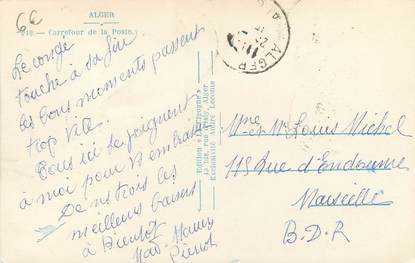 6€
ALGER
Carrefour de la Poste.
Le congé
touche à sa fin
les bons moments passent
trop vite.
Tous ici se joignent
à moi pour vs embrasser
De ns trois les
meilleurs baisers
à Bientôt
Pierrot
Edition « L'Afrique »
Alger
Exclusivité André Leconte
ALGER
Mme et Mr Louis Michel
115 Rue d'Endoume
Marseille
B.D.R